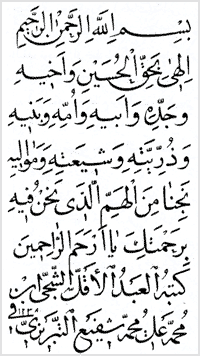 بسم الله الرحمن الرحیم
الهی بحق الحسین و اخیه
و جده و ابیه و امه و بنیه
و ذریته و شیعته و موالیه
نجنا من الهم الذی نحن فیه
برحمتک یا ارحم الراحمین
کتبه العبد الاقل الشجی ابن
محمد علی محمد شفیع التبریزی فی